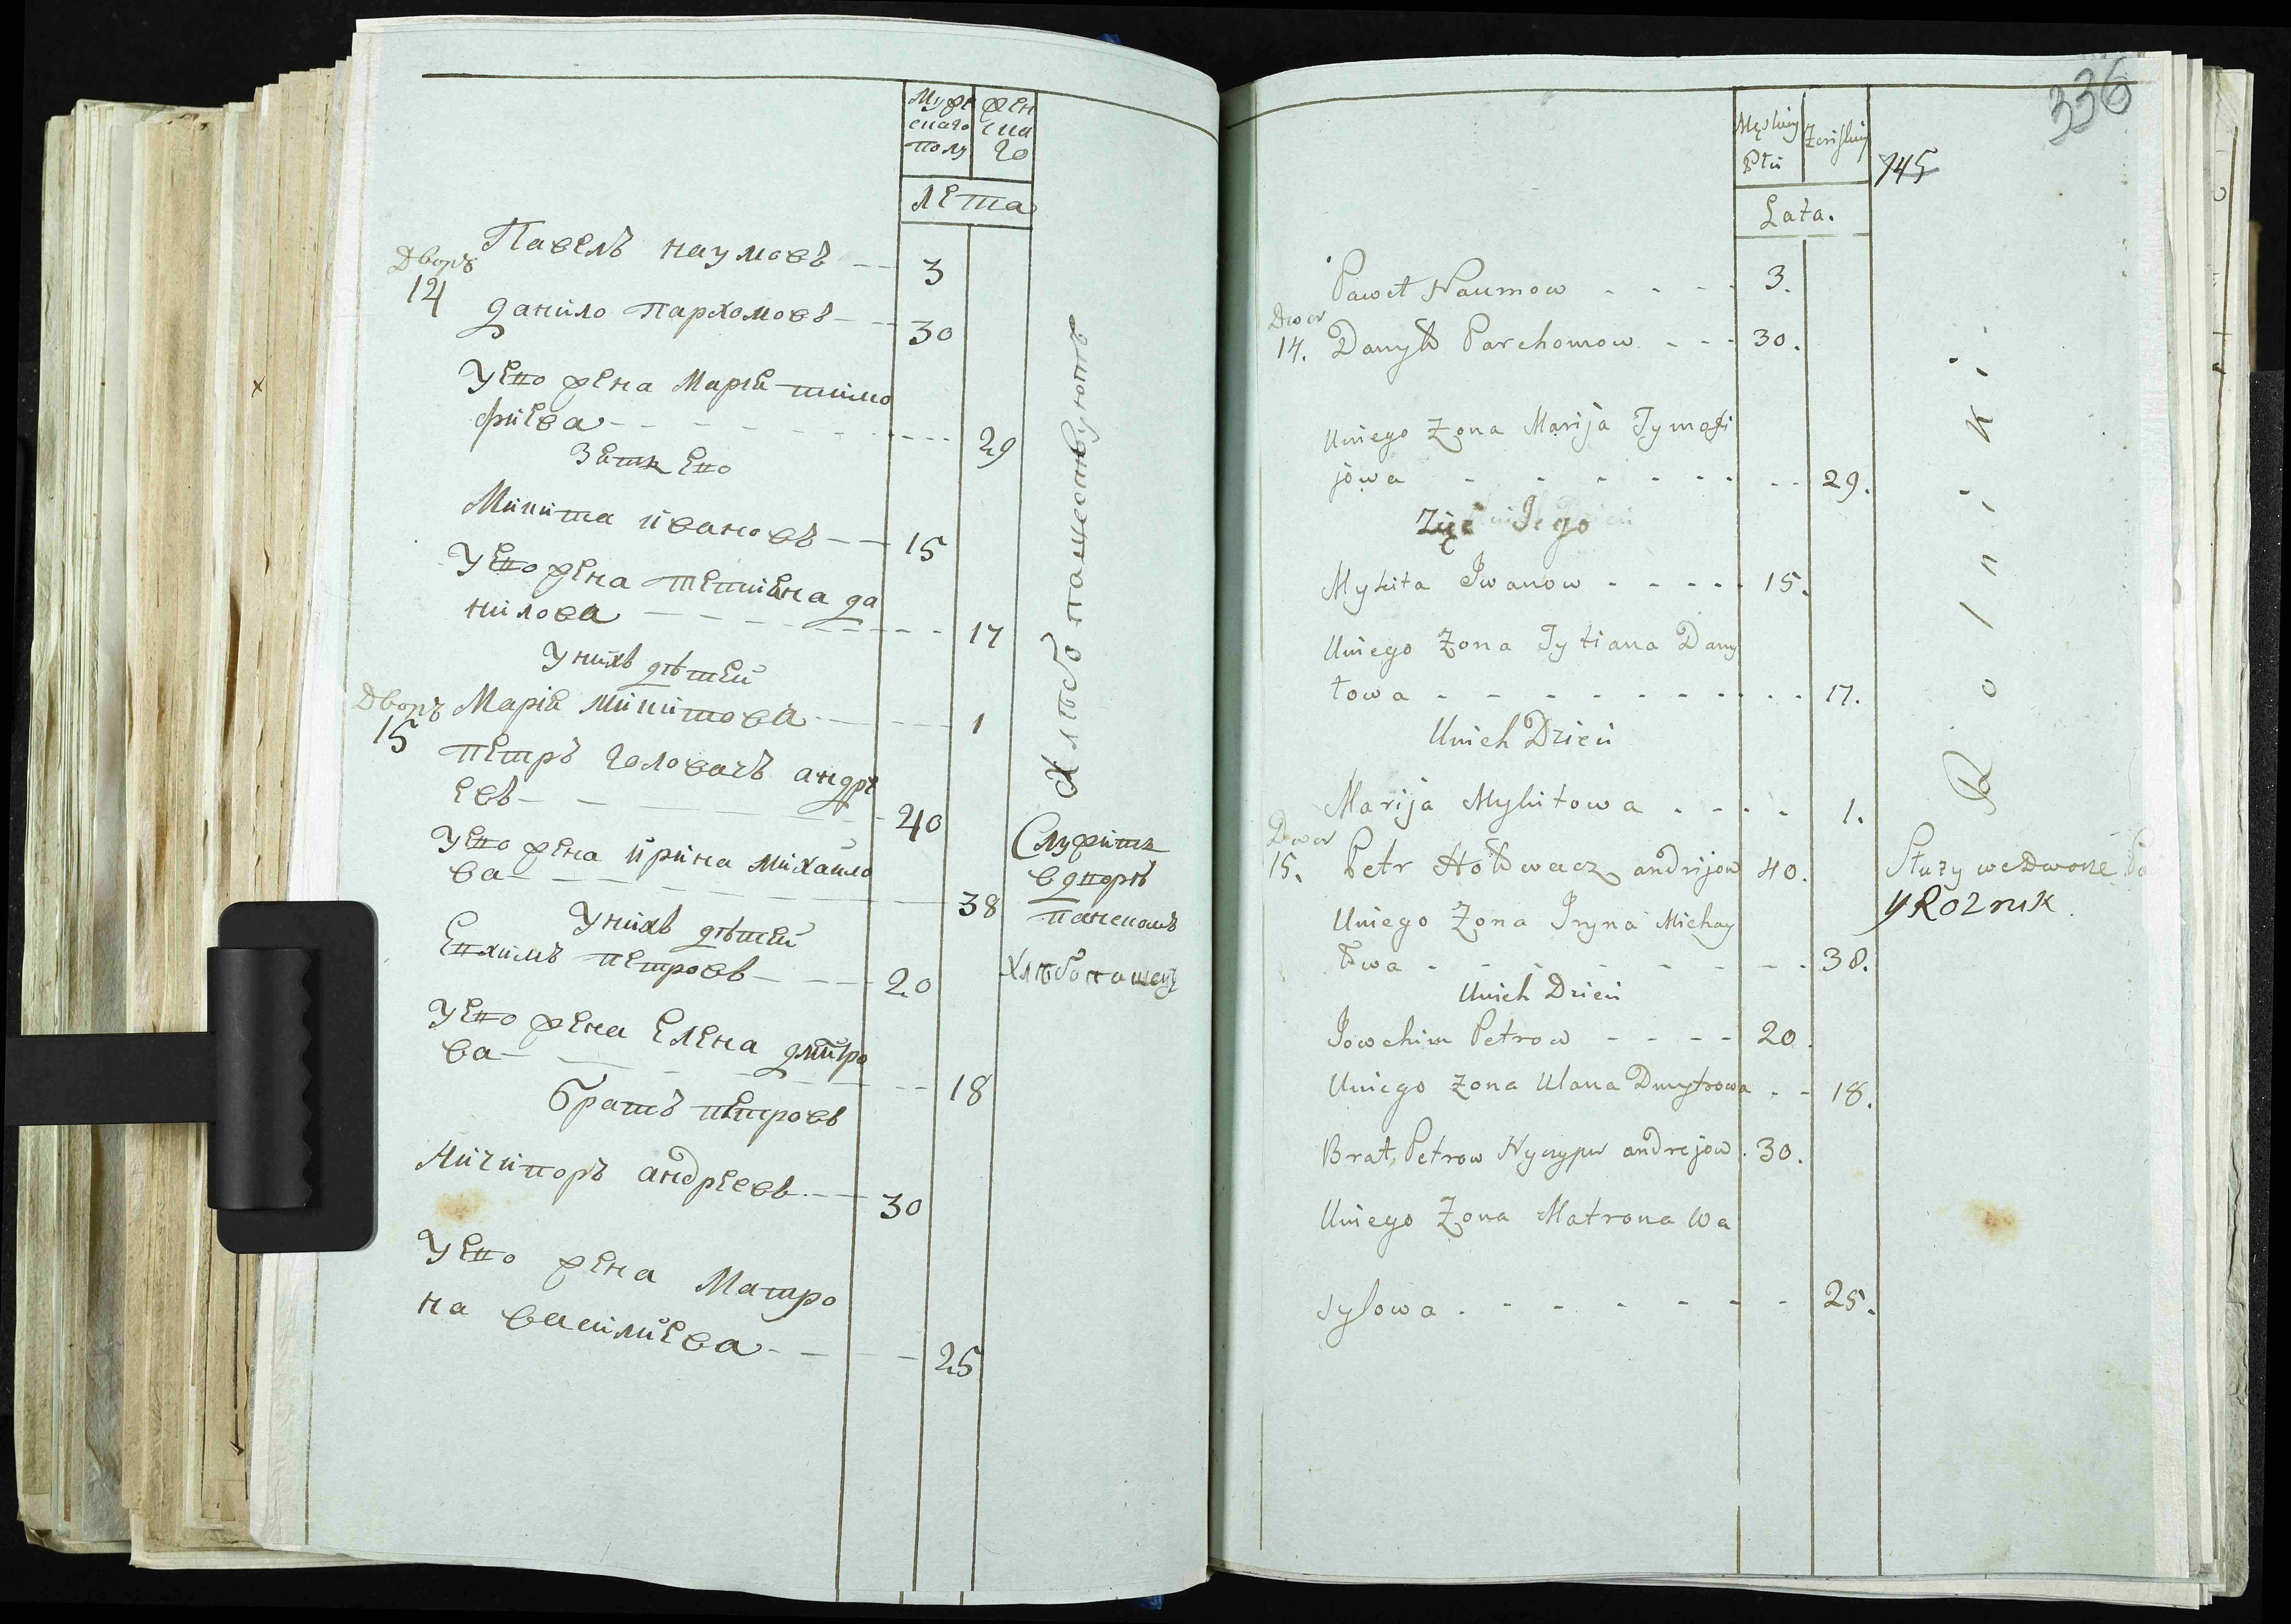 Мужескаго полу
женскаго
лета
Павелъ наумовъ 3
Дворъ
14
данило пархомовъ 30
У ево жена Мария тимо
фиева 29
Зять ево
Микита ивановъ 15
У ево жена тетияна да
нилова 17
У нихъ дѣтей
Мария микитова 1
Дворъ
15
петръ головачъ андре
евъ 40
У ево жена ирина михайло
ва 38
У нихъ дѣтей
Евхимъ петровъ 20
У ево жена Елена дмитро
ва 18
братъ петровъ
Ничипоръ андреевъ 30
У ево жена Матро
на василиева 25
Хлѣбопашествуютъ
Служитъ
в дворѣ
панскомъ
хлѣбопашец
336
745
Męskiey Płci
Zeńskiey
Lata.
Paweł Naumow 3.
Dwor
14. Danyło Parchomow 30.
U niego Zona Marija Tymofi
jowa 29.
Zięć Jego
Mykita Iwanow 15.
U niego Zona Tytiana Dany
łowa 17.
U nich Dzieci
Marija Mykitowa 1.
Dwor
15. Petr Hołowacz andrijow 40.
U niego Zona Iryna Michay
łowa 38.
U nich Dzieci
Jowchim Petrow 20.
U niego Zona Ulana Dmytrowa 18.
Brat Petrow Nyczypor andrejow 30.
U niego Zona Matrona Wa
sylowa 25.
Rolniki
Służy we Dworze
y Rolnik